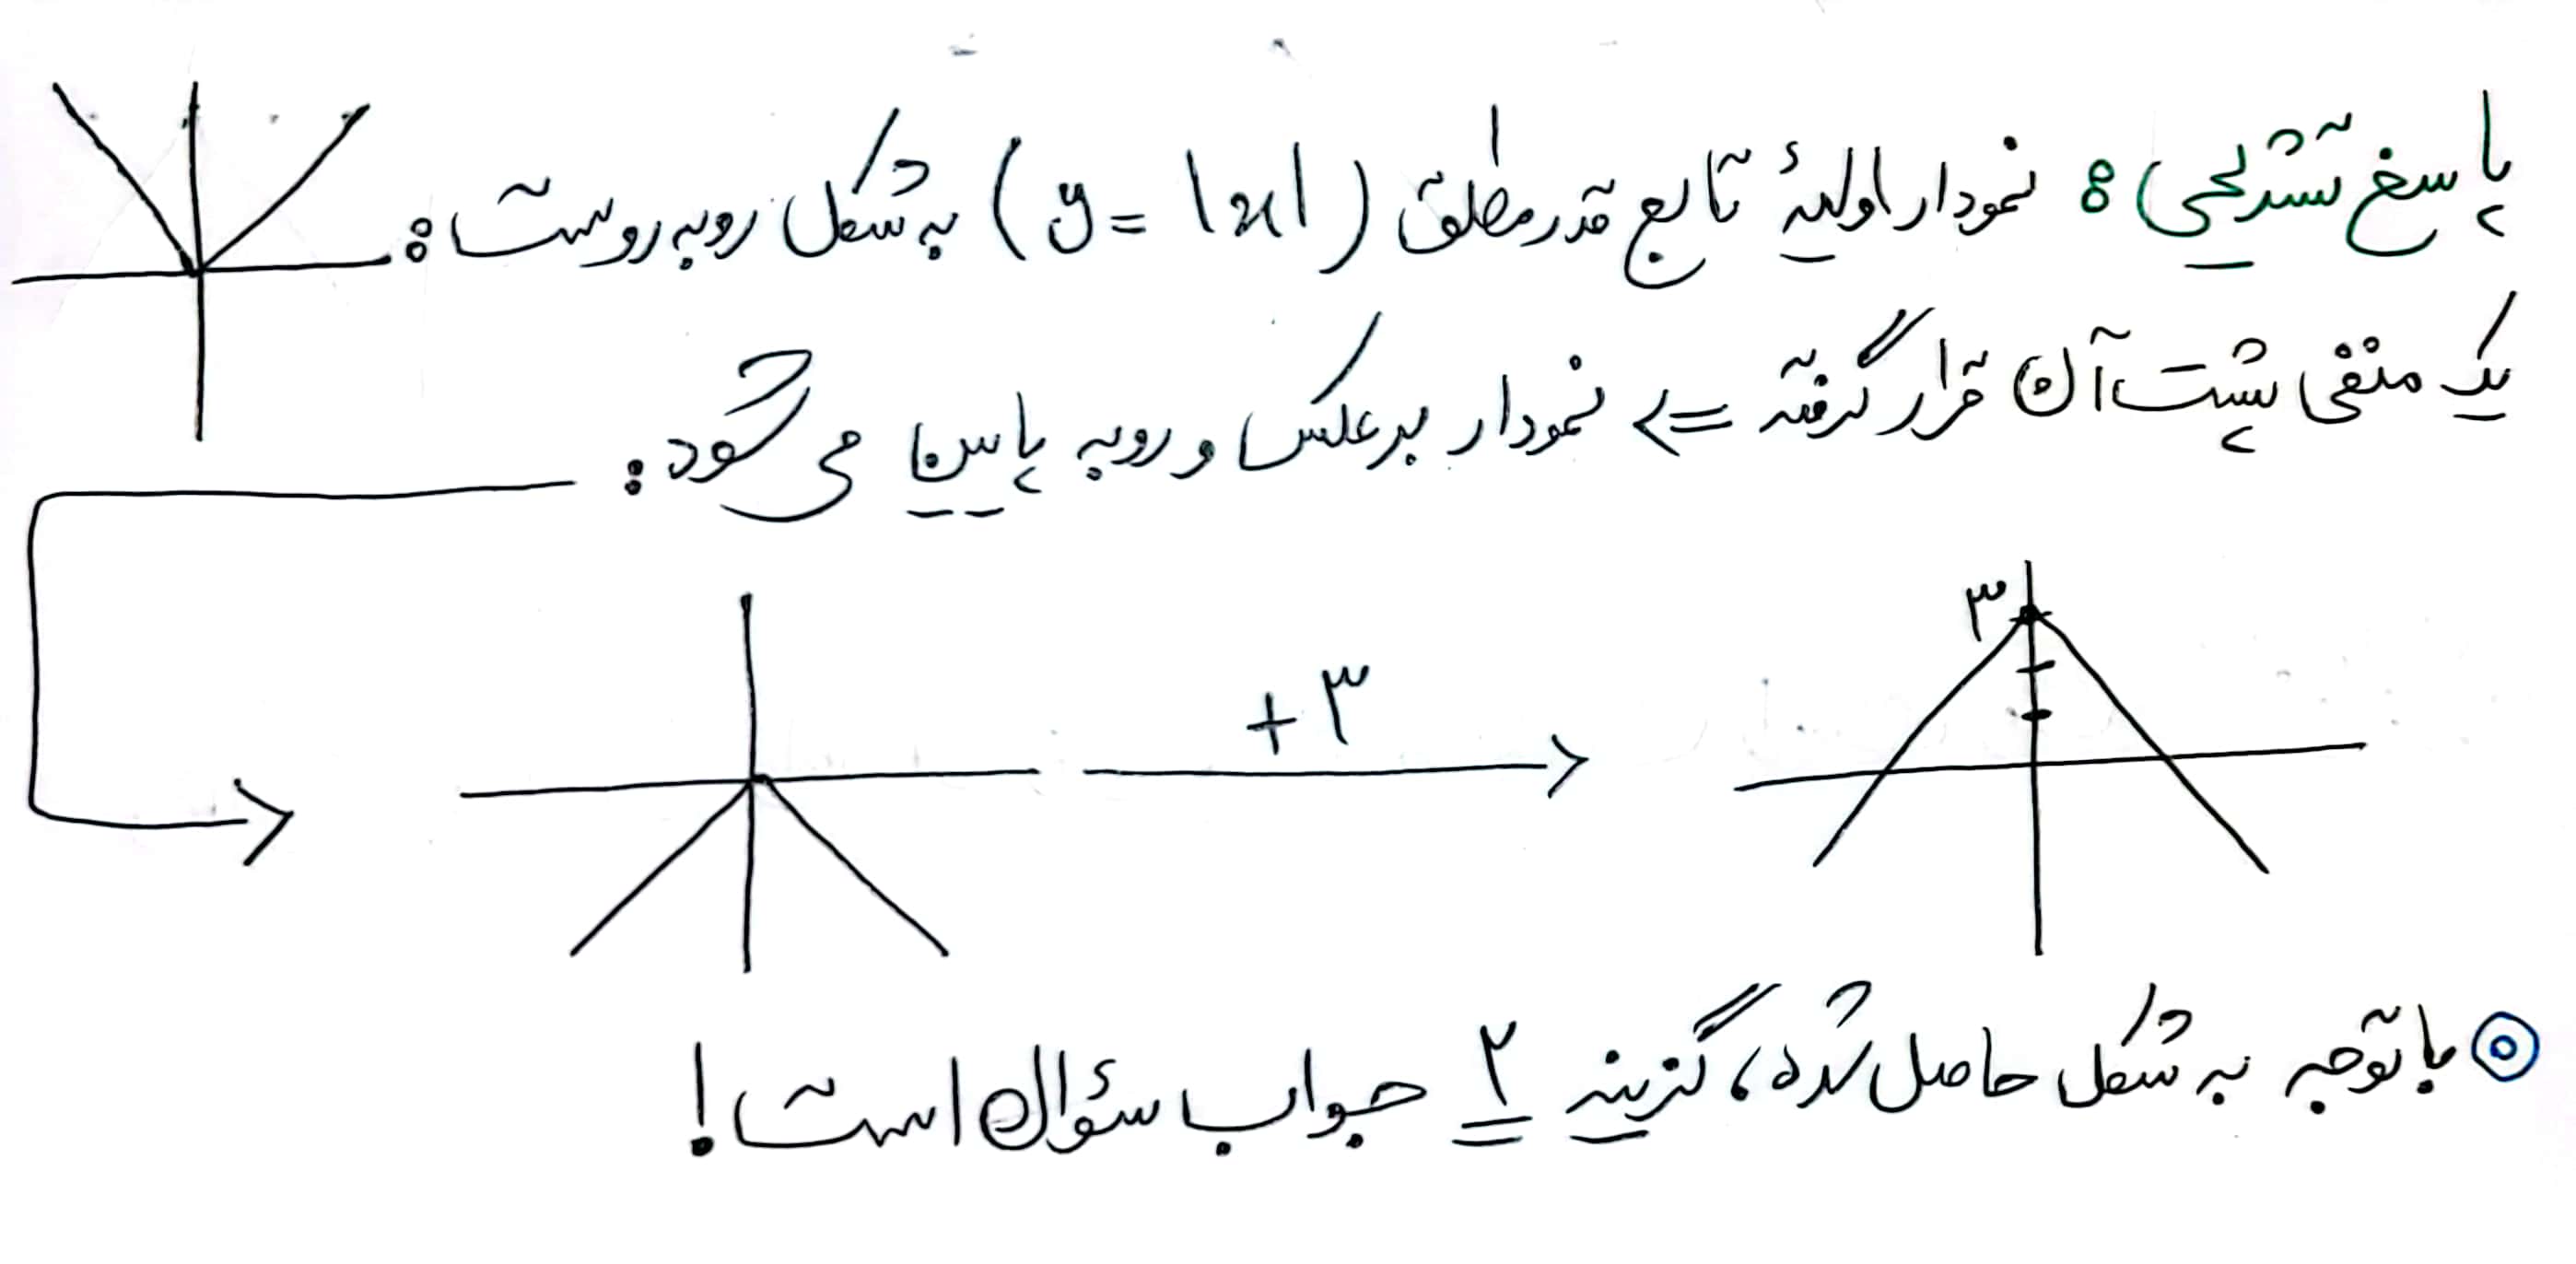 پاسخ تشریحی: نمودار اولیهٔ تابع قدرمطلق (y = |x|) به شکل روبه‌روست:
یک منفی پشت آن قرار گرفته => نمودار برعکس و روبه پایین می‌شود:
۳
+۳
با توجه به شکل حاصل شده، گزینه ۲ جواب سؤال است!